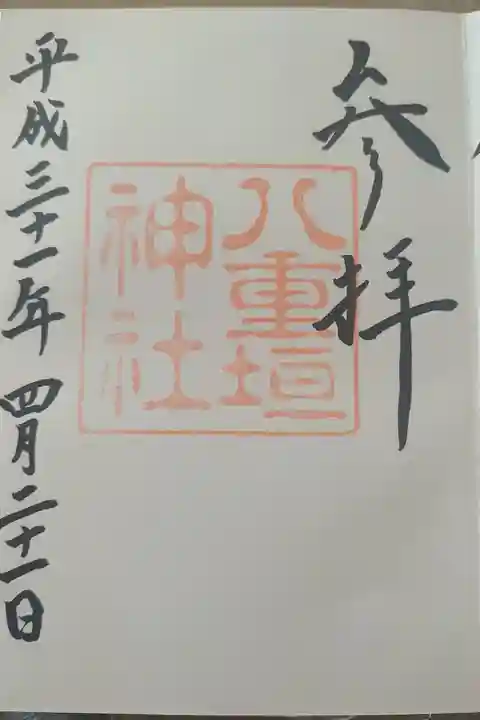 参拝
八重垣
神社
平成三十一年 四月二十一日